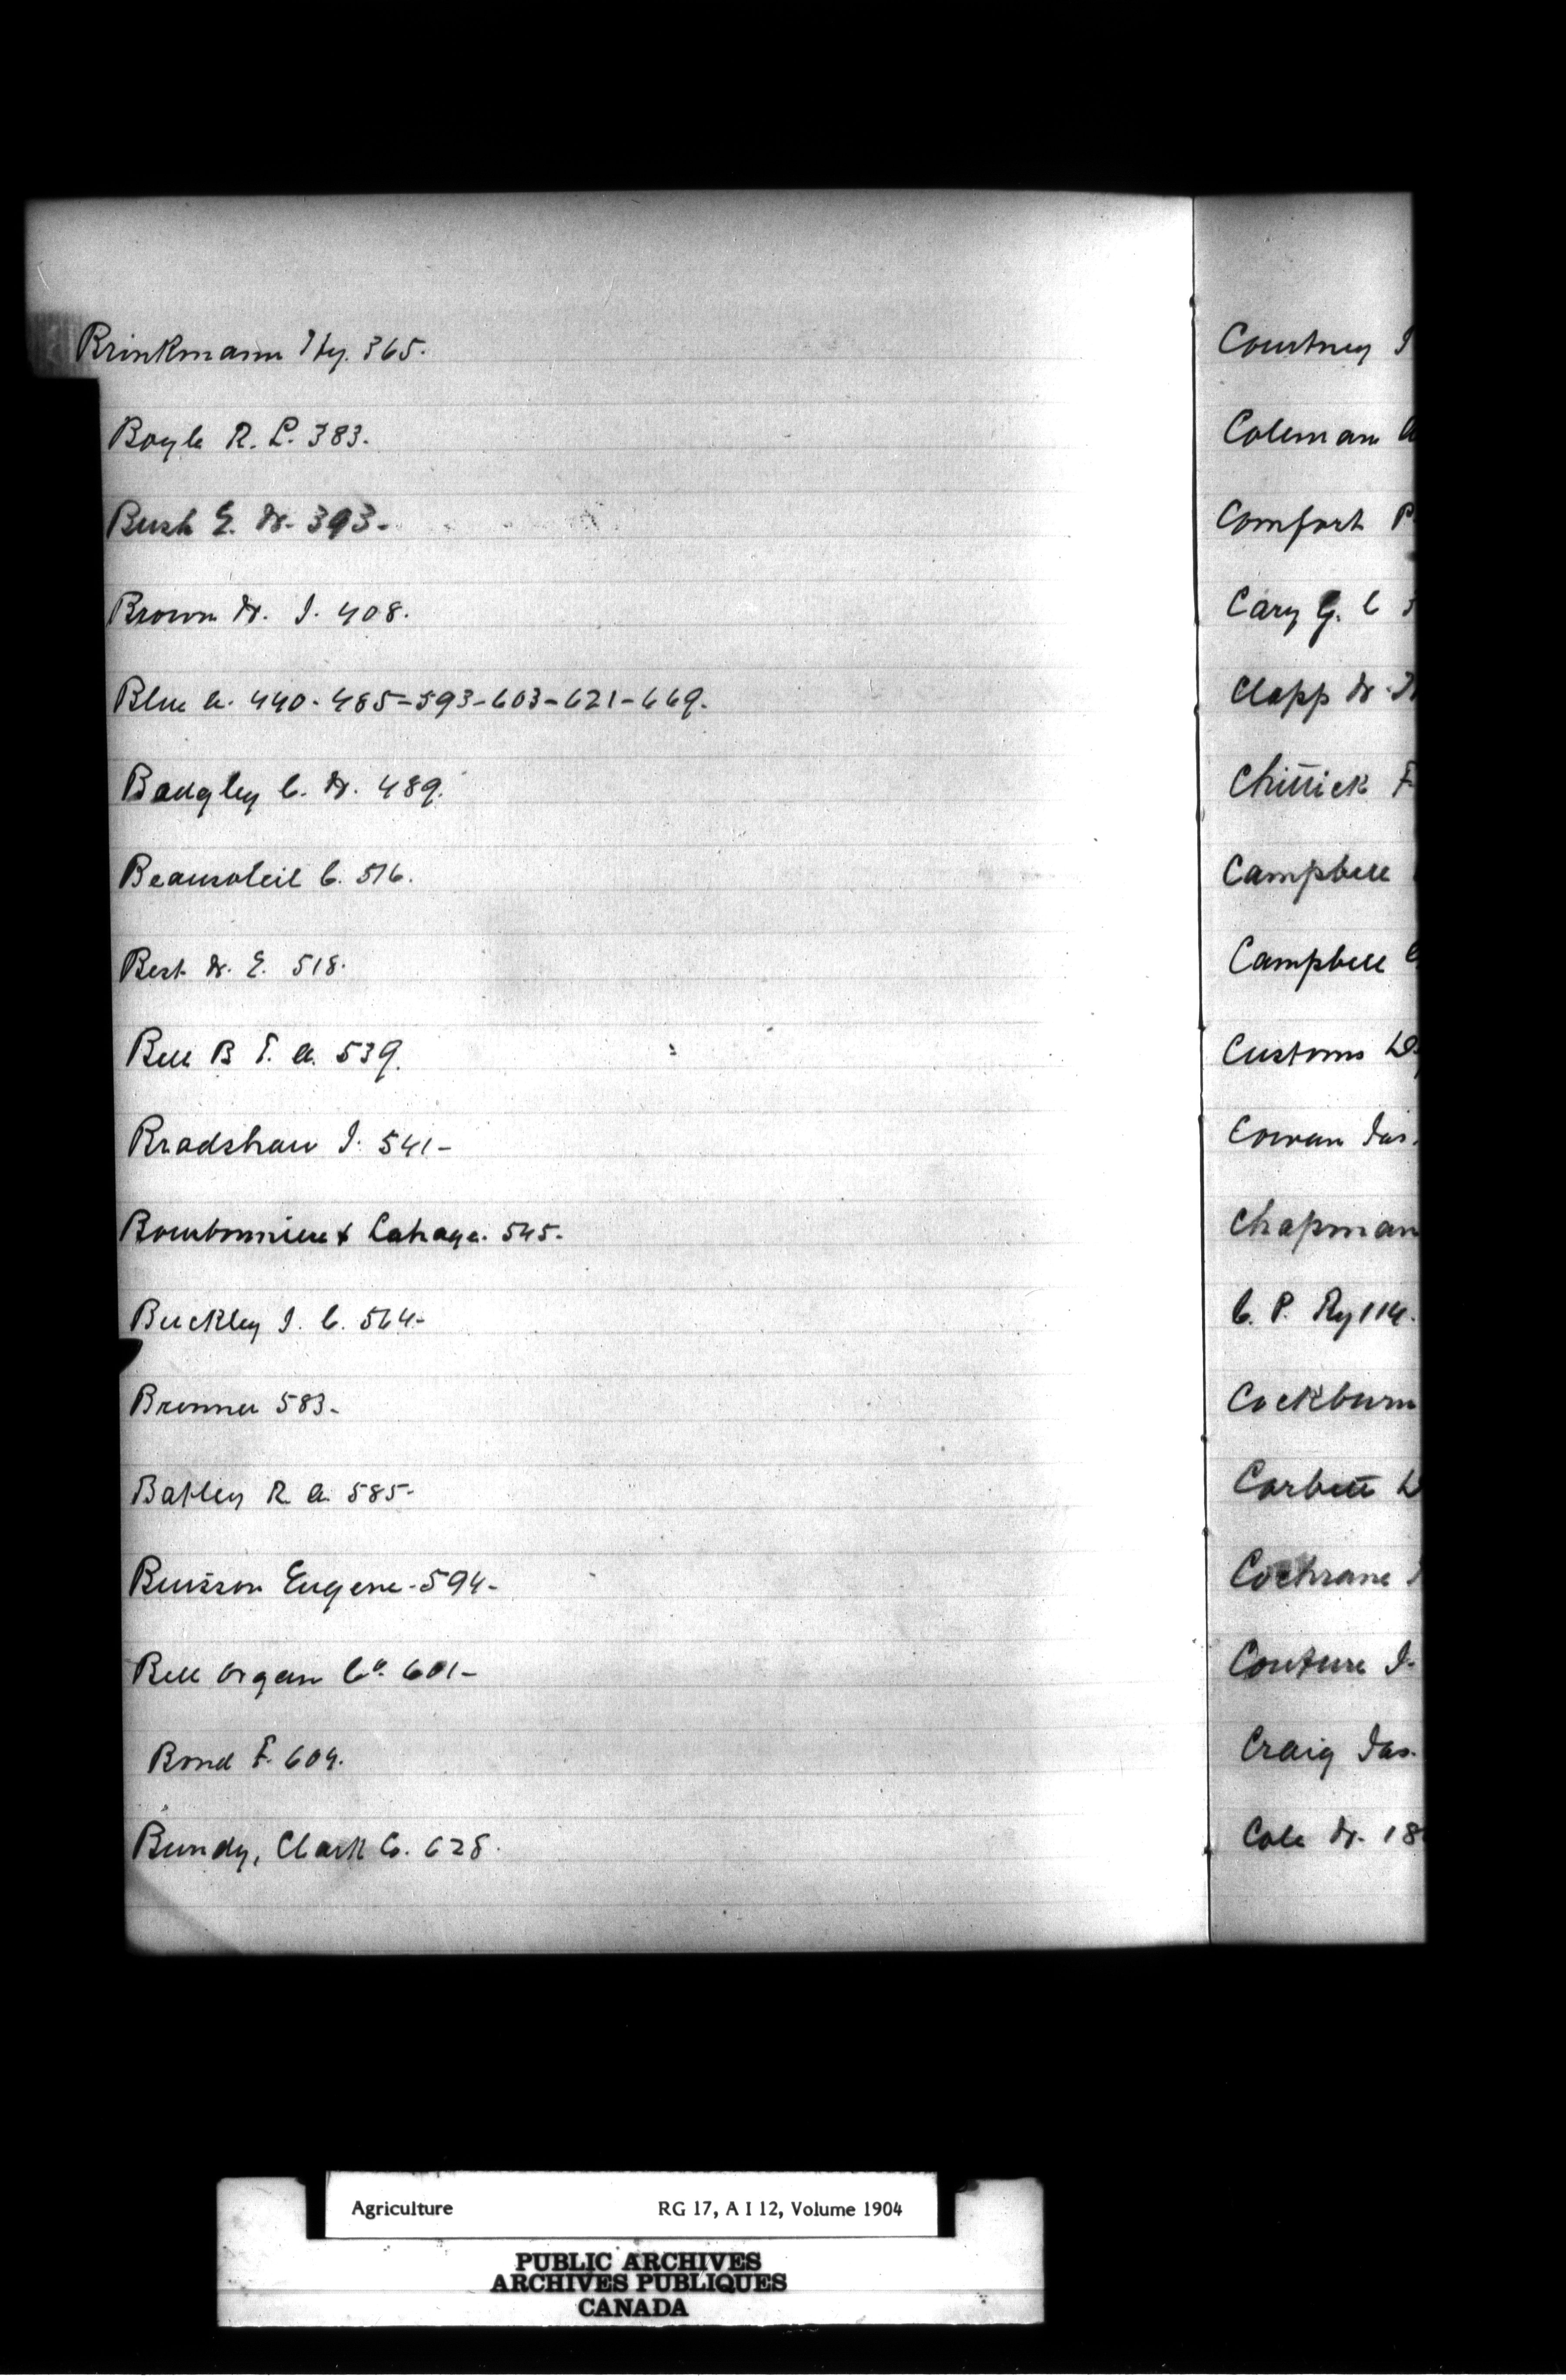 Brinkmann Hy. 365.
Boyle R. L. 383.
Bush E. W. 393-
Brown W. J. 408.
Blue A. 440. 485-593-603-621-669.
Badgley C. W. 489.
Beausoleil C. 516.
Best W. E. 518.
Bell B T. A. 539.
Bradshaw J. 541-
Bourbonniere & Lahaye. 545.
Buckley J. C. 564-
Bronner 583-
Batley R A. 585-
Buisson Eugene-594-
Bell Organ Co. 601-
Bond F. 604.
Bundy, Clark C. 628.
Courtney J
Coleman A
Comfort P.
Cary G. C
Clapp W. H
Chittick F
Campbell
Campbell
Customs D
Cowan Jas.
Chapman
C. P. Ry 114.
Cockburn
Corbett D
Cochrane
Couture J.
Craig Jas.
Cole W. 18
Agriculture RG 17, A I 12, Volume 1904
PUBLIC ARCHIVES
ARCHIVES PUBLIQUES
CANADA